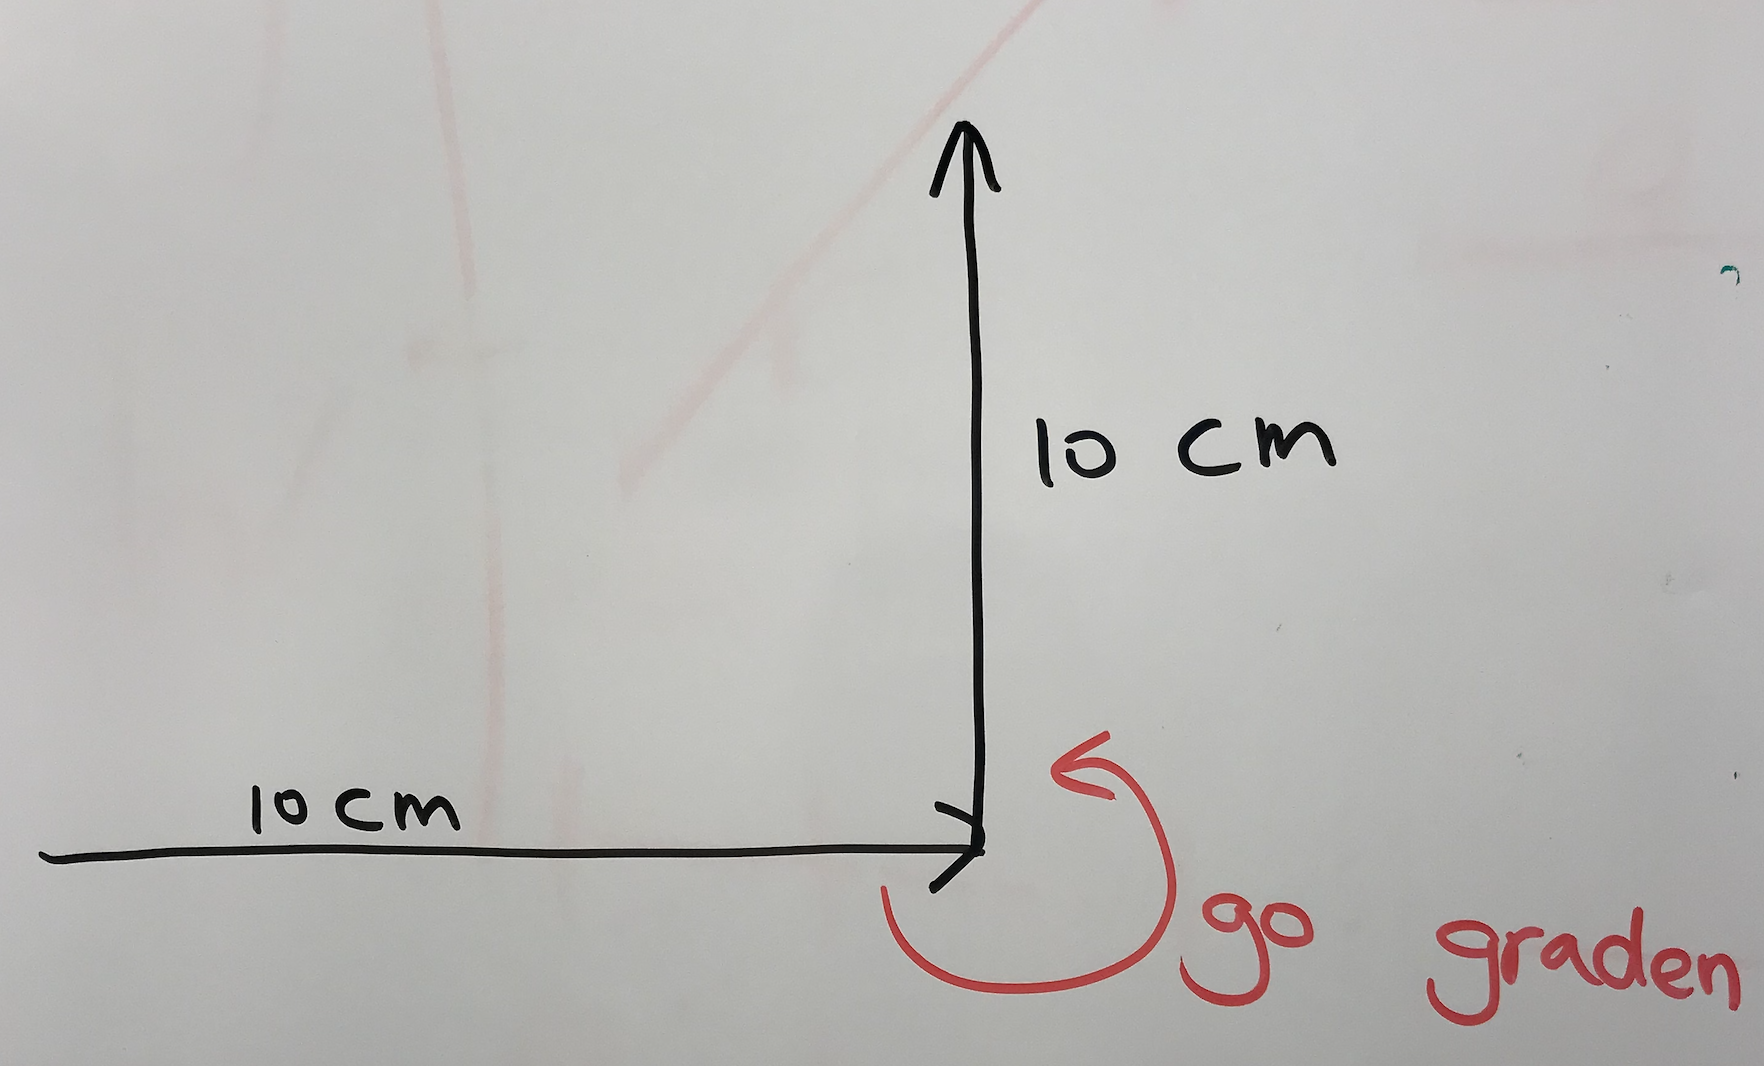 10 cm
10 cm
90 graden